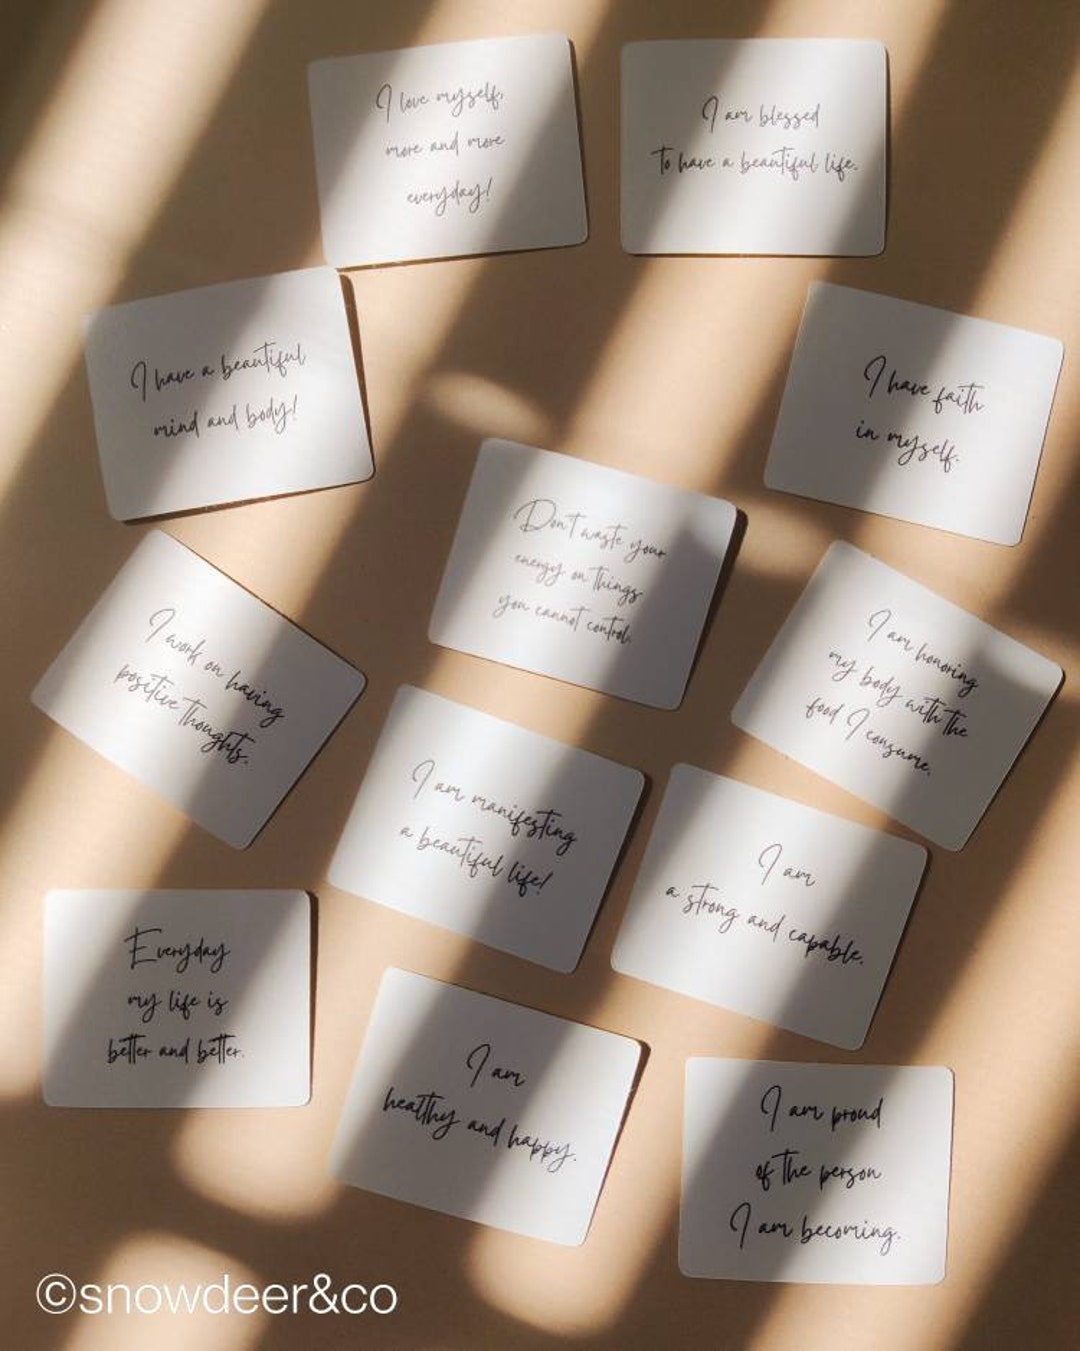 I love myself,
more and more
everyday!
I am blessed
to have a beautiful life.
I have a beautiful
mind and body!
I have faith
in myself.
Don't waste your
energy on things
you cannot control.
I work on having
positive thoughts.
I am honoring
my body with the
food I consume.
I am manifesting
a beautiful life!
I am
a strong and capable.
Everyday
my life is
better and better.
I am
healthy and happy.
I am proud
of the person
I am becoming.
©snowdeer&co